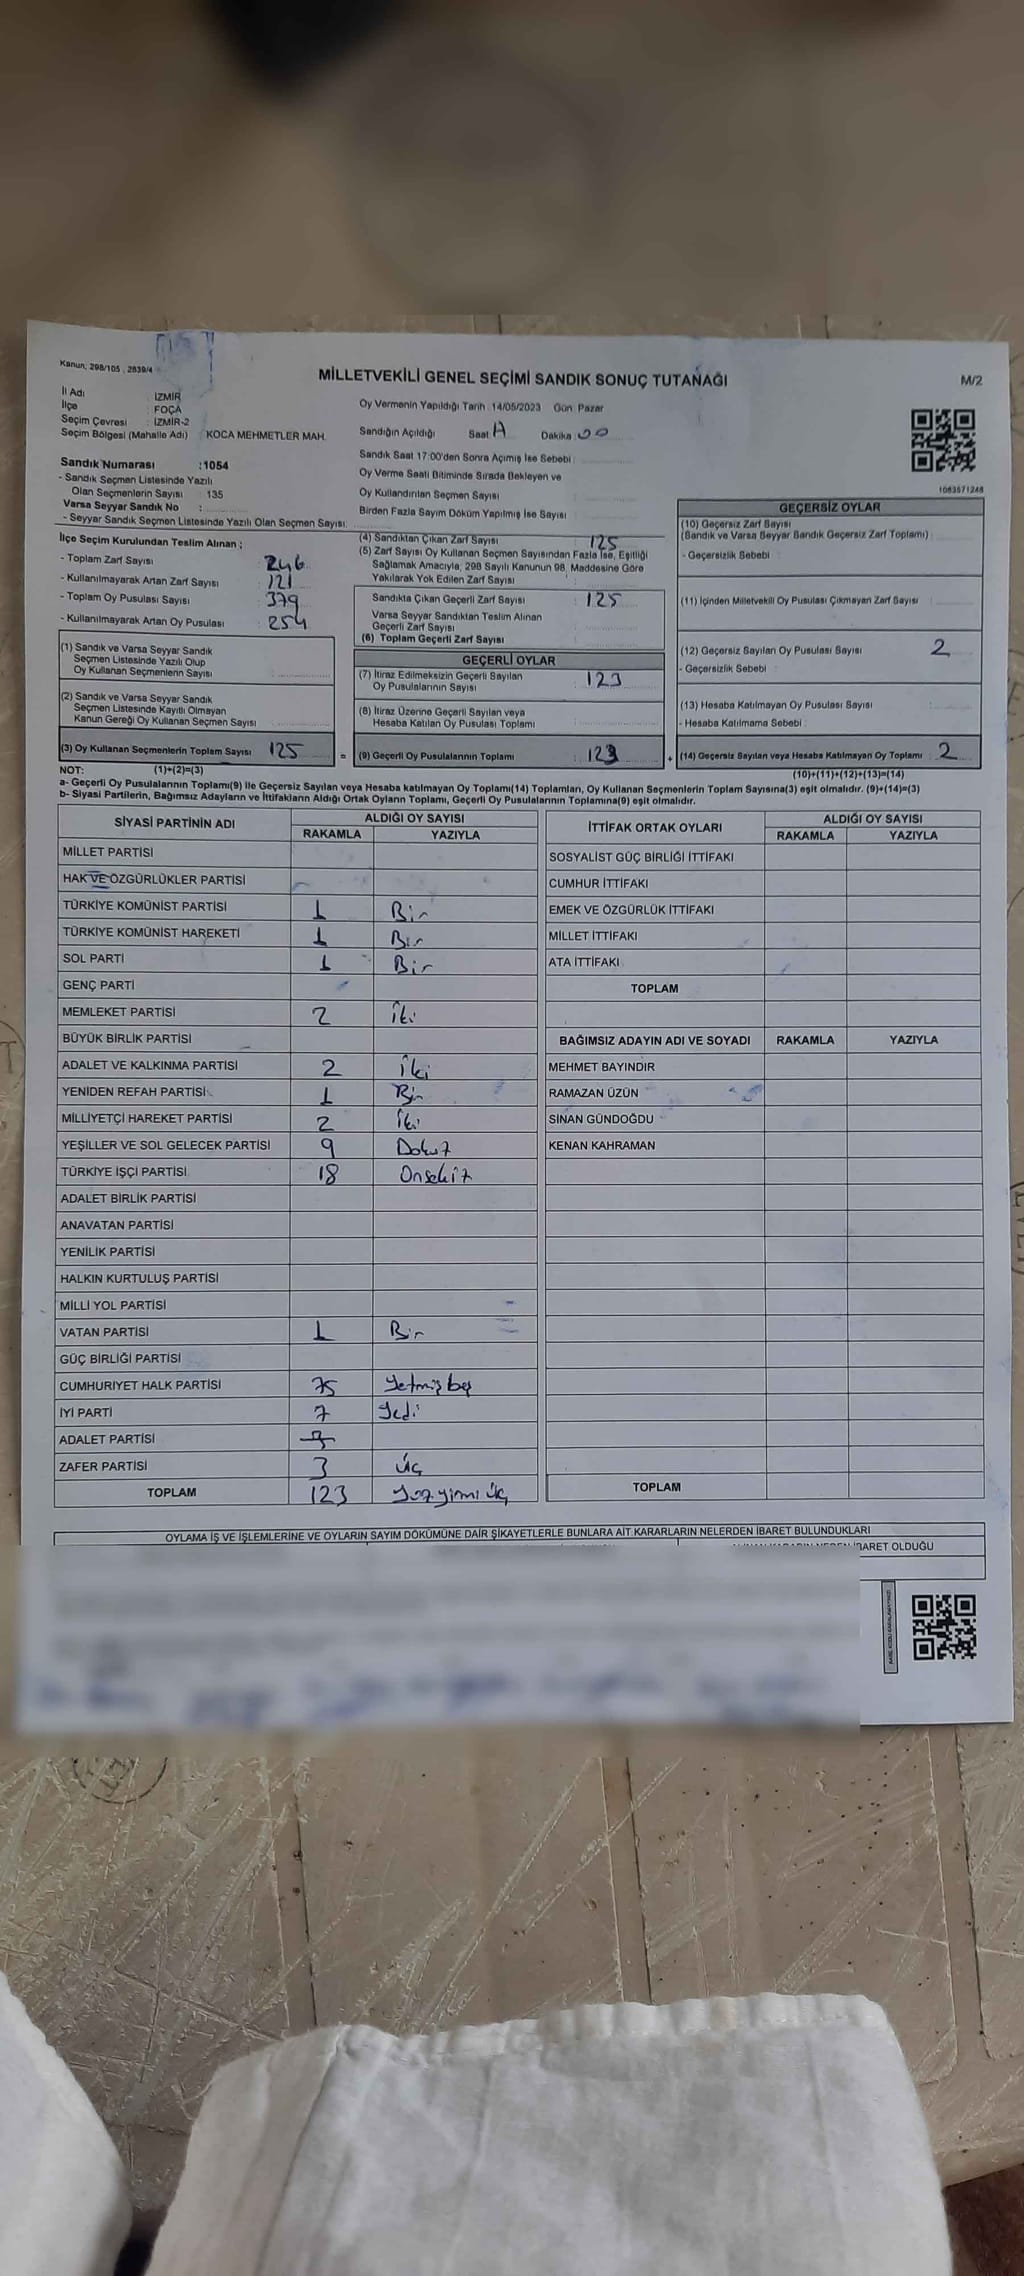 Kanun; 298/105 , 2839/4
MİLLETVEKİLİ GENEL SEÇİMİ SANDIK SONUÇ TUTANAĞI
M/2
İl Adı : İZMİR
İlçe : FOÇA
Seçim Çevresi : İZMİR-2
Seçim Bölgesi (Mahalle Adı) KOCA MEHMETLER MAH.
Sandık Numarası :1054
- Sandık Seçmen Listesinde Yazılı
Olan Seçmenlerin Sayısı : 135
Varsa Seyyar Sandık No :
- Seyyar Sandık Seçmen Listesinde Yazılı Olan Seçmen Sayısı:
Oy Vermenin Yapıldığı Tarih : 14/05/2023 Gün: Pazar
Sandığın Açıldığı Saat Dakika : 00
Sandık Saat 17:00'den Sonra Açımış İse Sebebi :
Oy Verme Saati Bitiminde Sırada Bekleyen ve
Oy Kullandırılan Seçmen Sayısı
Birden Fazla Sayım Döküm Yapılmış İse Sayısı :
1083571248
İlçe Seçim Kurulundan Teslim Alınan ;
- Toplam Zarf Sayısı : 246
- Kullanılmayarak Artan Zarf Sayısı : 121
- Toplam Oy Pusulası Sayısı : 379
- Kullanılmayarak Artan Oy Pusulası : 254
(1) Sandık ve Varsa Seyyar Sandık
Seçmen Listesinde Yazılı Olup
Oy Kullanan Seçmenlerin Sayısı :
(2) Sandık ve Varsa Seyyar Sandık
Seçmen Listesinde Kayıtlı Olmayan
Kanun Gereği Oy Kullanan Seçmen Sayısı :
(3) Oy Kullanan Seçmenlerin Toplam Sayısı : 125 =
(4) Sandıktan Çıkan Zarf Sayısı : 125
(5) Zarf Sayısı Oy Kullanan Seçmen Sayısından Fazla İse, Eşitliği
Sağlamak Amacıyla; 298 Sayılı Kanunun 98. Maddesine Göre
Yakılarak Yok Edilen Zarf Sayısı :
Sandıkta Çıkan Geçerli Zarf Sayısı : 125
Varsa Seyyar Sandıktan Teslim Alınan
Geçerli Zarf Sayısı :
(6) Toplam Geçerli Zarf Sayısı :
GEÇERLİ OYLAR
(7) İtiraz Edilmeksizin Geçerli Sayılan
Oy Pusulalarının Sayısı : 123
(8) İtiraz Üzerine Geçerli Sayılan veya
Hesaba Katılan Oy Pusulası Toplamı :
(9) Geçerli Oy Pusulalarının Toplamı : 123 +
GEÇERSİZ OYLAR
(10) Geçersiz Zarf Sayısı
(Sandık ve Varsa Seyyar Sandık Geçersiz Zarf Toplamı) :
- Geçersizlik Sebebi :
(11) İçinden Milletvekili Oy Pusulası Çıkmayan Zarf Sayısı :
(12) Geçersiz Sayılan Oy Pusulası Sayısı : 2
- Geçersizlik Sebebi :
(13) Hesaba Katılmayan Oy Pusulası Sayısı :
- Hesaba Katılmama Sebebi :
(14) Geçersiz Sayılan veya Hesaba Katılmayan Oy Toplamı : 2
NOT: (1)+(2)=(3)
(10)+(11)+(12)+(13)=(14)
a- Geçerli Oy Pusulalarının Toplamı(9) ile Geçersiz Sayılan veya Hesaba katılmayan Oy Toplamı(14) Toplamları, Oy Kullanan Seçmenlerin Toplam Sayısına(3) eşit olmalıdır. (9)+(14)=(3)
b- Siyasi Partilerin, Bağımsız Adayların ve İttifakların Aldığı Ortak Oyların Toplamı, Geçerli Oy Pusulalarının Toplamına(9) eşit olmalıdır.
SİYASİ PARTİNİN ADI ALDIĞI OY SAYISI
RAKAMLA YAZIYLA
MİLLET PARTİSİ
HAK VE ÖZGÜRLÜKLER PARTİSİ
TÜRKİYE KOMÜNİST PARTİSİ 1 Bir
TÜRKİYE KOMÜNİST HAREKETİ 1 Bir
SOL PARTİ 1 Bir
GENÇ PARTİ
MEMLEKET PARTİSİ 2 İki
BÜYÜK BİRLİK PARTİSİ
ADALET VE KALKINMA PARTİSİ 2 İki
YENİDEN REFAH PARTİSİ 1 Bir
MİLLİYETÇİ HAREKET PARTİSİ 2 İki
YEŞİLLER VE SOL GELECEK PARTİSİ 9 Dokuz
TÜRKİYE İŞÇİ PARTİSİ 18 Onsekiz
ADALET BİRLİK PARTİSİ
ANAVATAN PARTİSİ
YENİLİK PARTİSİ
HALKIN KURTULUŞ PARTİSİ
MİLLİ YOL PARTİSİ
VATAN PARTİSİ 1 Bir
GÜÇ BİRLİĞİ PARTİSİ
CUMHURİYET HALK PARTİSİ 75 Yetmiş beş
İYİ PARTİ 7 Yedi
ADALET PARTİSİ
ZAFER PARTİSİ 3 Üç
TOPLAM 123 Yüz yirmi üç
İTTİFAK ORTAK OYLARI ALDIĞI OY SAYISI
RAKAMLA YAZIYLA
SOSYALİST GÜÇ BİRLİĞİ İTTİFAKI
CUMHUR İTTİFAKI
EMEK VE ÖZGÜRLÜK İTTİFAKI
MİLLET İTTİFAKI
ATA İTTİFAKI
TOPLAM
BAĞIMSIZ ADAYIN ADI VE SOYADI RAKAMLA YAZIYLA
MEHMET BAYINDIR
RAMAZAN ÜZÜN
SİNAN GÜNDOĞDU
KENAN KAHRAMAN
TOPLAM
OYLAMA İŞ VE İŞLEMLERİNE VE OYLARIN SAYIM DÖKÜMÜNE DAİR ŞİKAYETLERLE BUNLARA AİT KARARLARIN NELERDEN İBARET BULUNDUKLARI
İBARET OLDUĞU